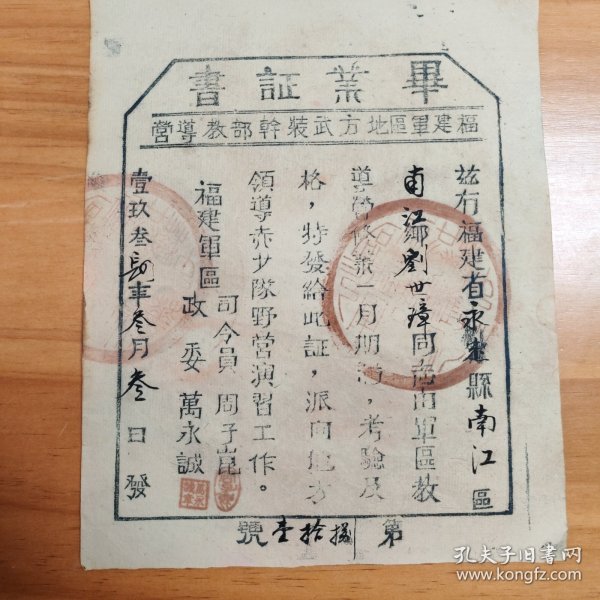 畢業証書
福建軍區地方武裝幹部教導營
兹有福建省永定縣南江區
南江鄉劉世璋同志由軍區教
導營修業一月期滿，考驗及
格，特發給此証，派向地方
領導赤少隊野營演習工作。
福建軍區
司令員 周子崑
政委 萬永誠
壹玖叁 年叁月叁日發
第 拾壹號
孔夫子旧書网
www.kongfz.com